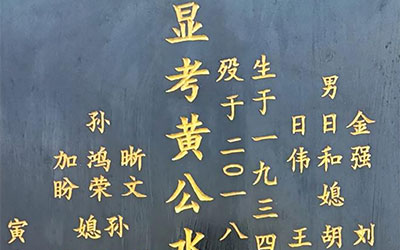 金强 刘
男日和媳胡
日伟 王
生于一九三四
殁于二〇一八
显考黄公水
晰文
孙鸿荣
加盼
孙媳
寅